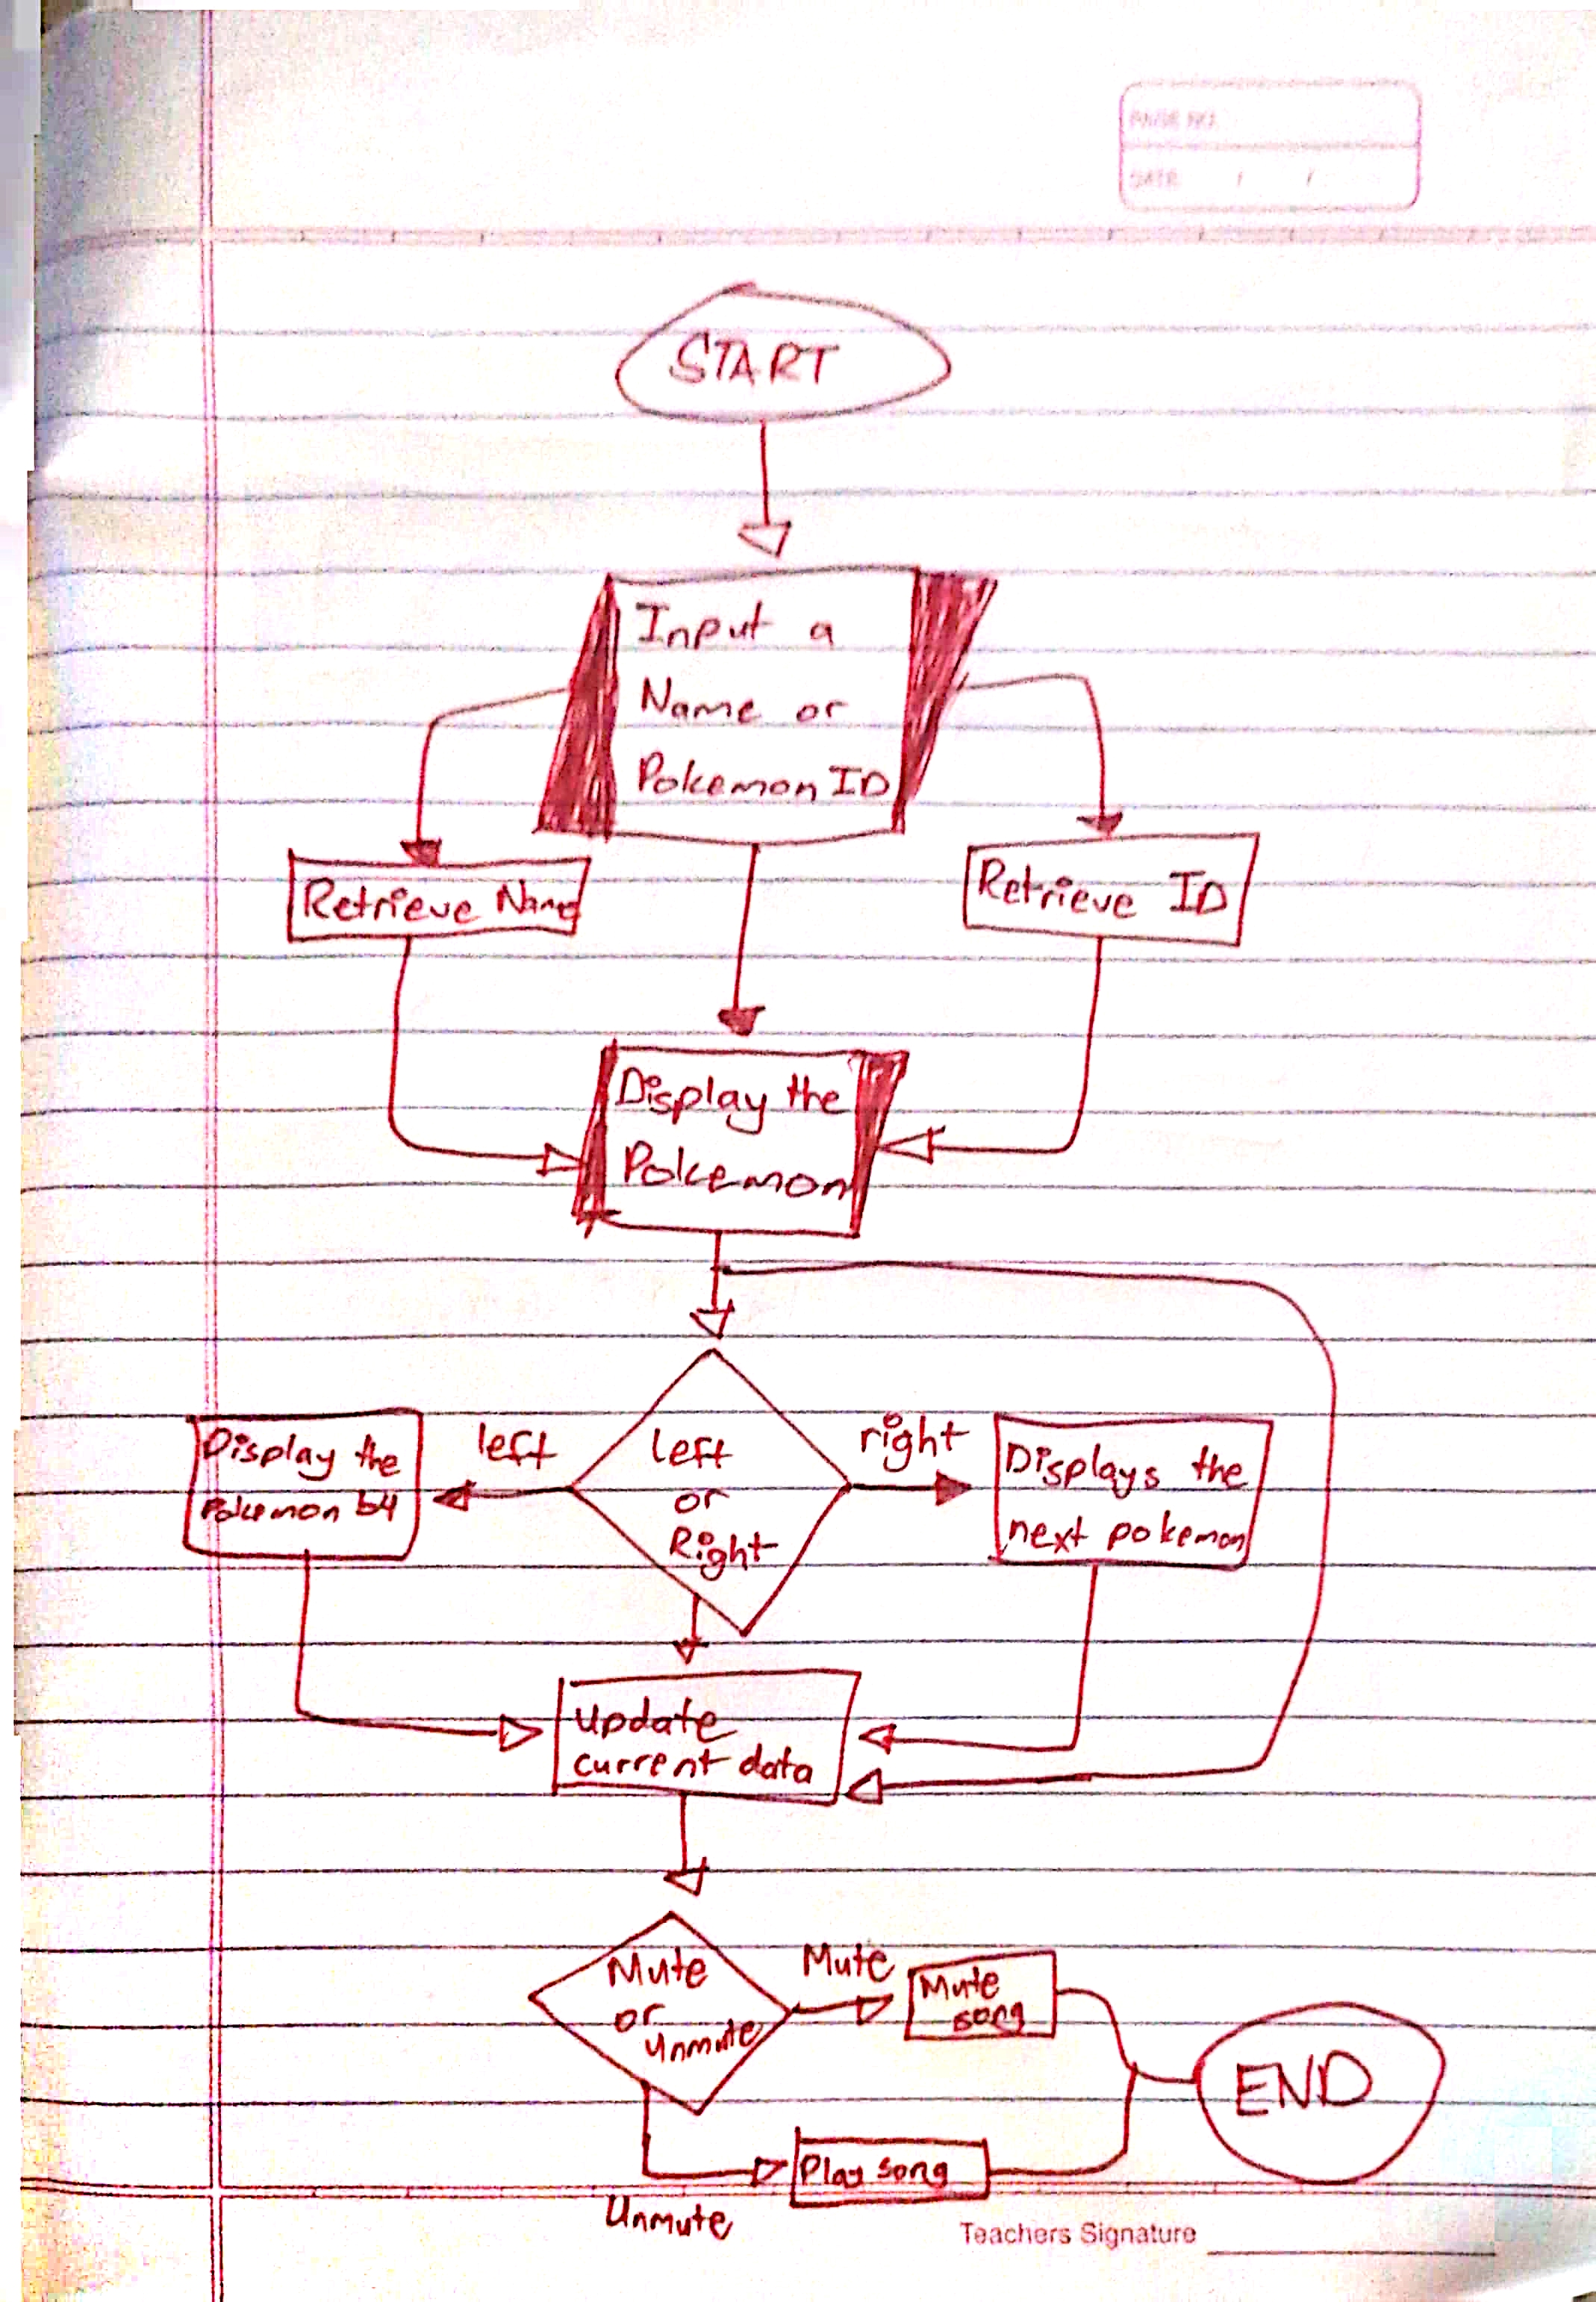 PAGE NO.
DATE / /
START
Input a
Name or
Pokemon ID
Retrieve Name
Retrieve ID
Display the
Pokemon
left
right
Display the
Pokemon b4
left
or
Right
Displays the
next pokemon
update
current data
Mute
or
unmute
Mute
Mute
song
END
Play song
Unmute
Teachers Signature